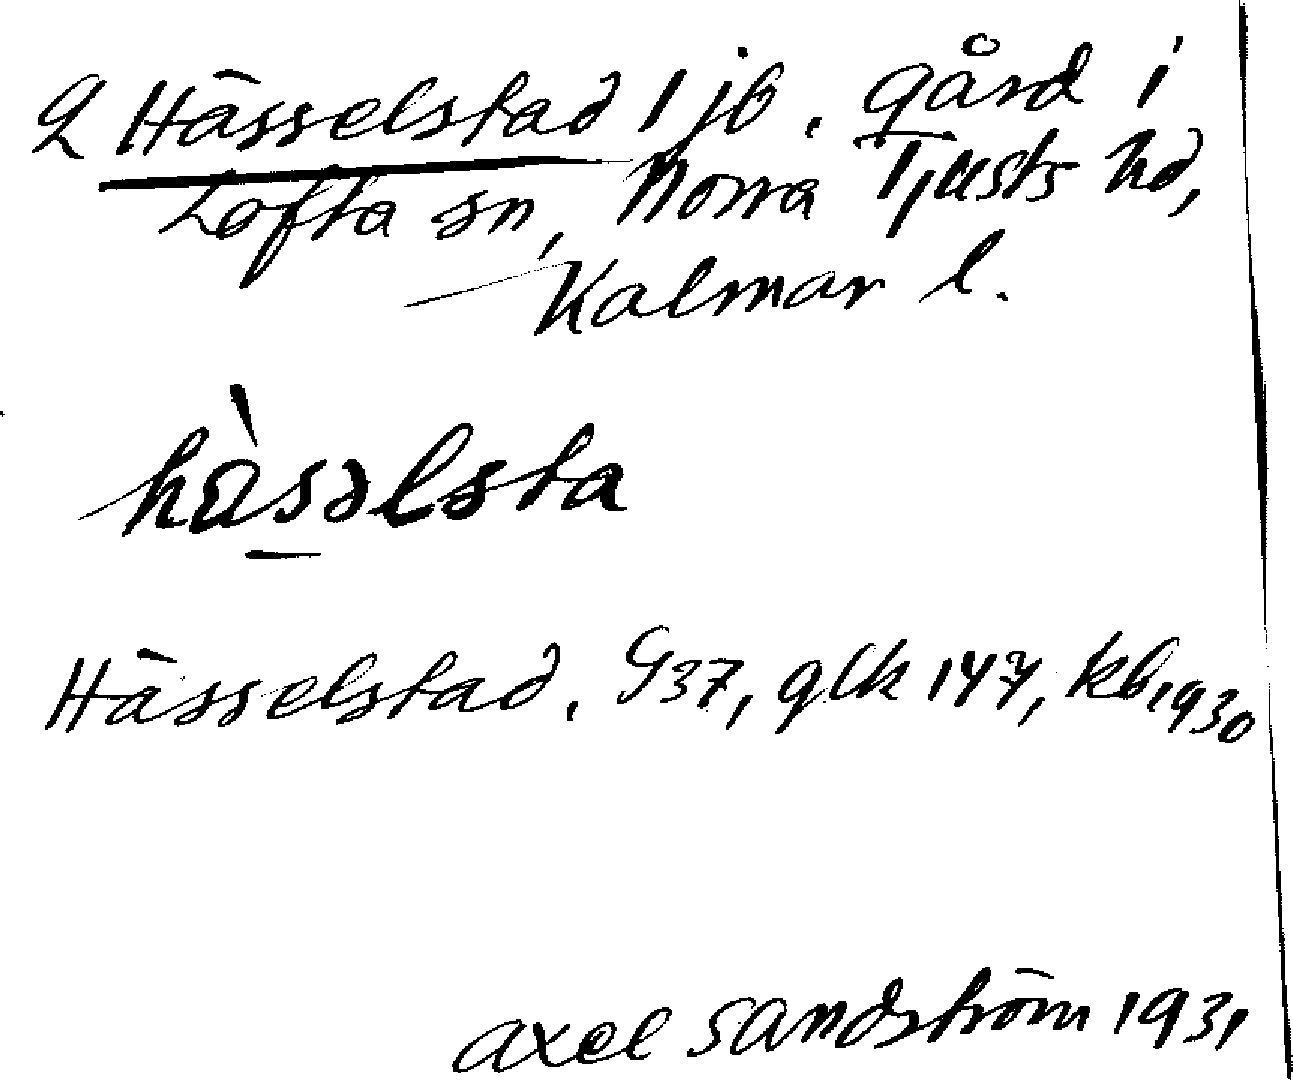 2 Hässelstad 1 jb. gård i
Lofta sn, Norra Tjusts hd,
Kalmar l.
hàsəlsta
Hässelstad. G37, glk 147, kb 1930
Axel Sandström 1931